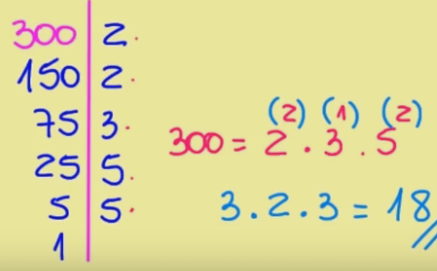 300 | 2.
150 | 2.
75 | 3.
25 | 5.
5 | 5.
1
(2) (1) (2)
300 = 2 . 3 . 5
3 . 2 . 3 = 18//